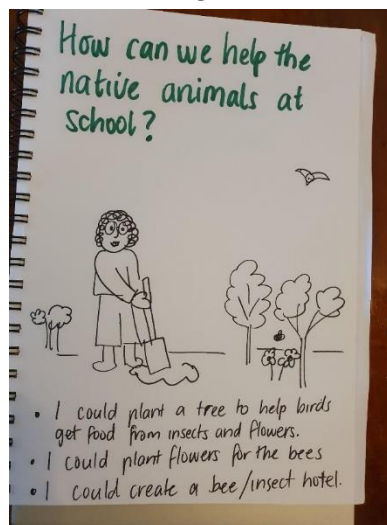 How can we help the
native animals at
school?
• I could plant a tree to help birds
get food from insects and flowers.
• I could plant flowers for the bees
• I could create a bee/insect hotel.